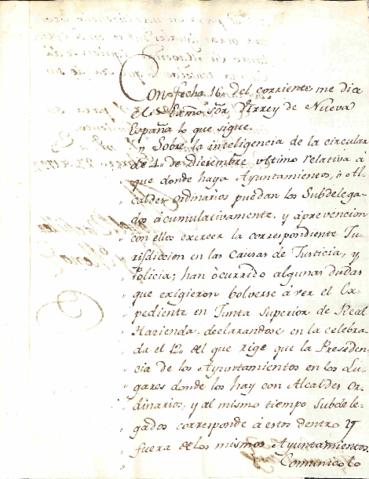 Con fecha 16 del corriente me dice
el Exmo. Sor. Virrey de Nueva
España lo que sigue.
„ Sobre la inteligencia de la circular
„ de 4 de Diciembre ultimo relativa á
„ que donde haya Ayuntamientos, ó Al-
„ caldes ordinarios puedan los Subdelega-
„ dos acumulativamente, y á prevencion
„ con ellos exercer la correspondiente Ju-
„ risdiccion en las Causas de Justicia, y
„ Policia; han ocurrido algunas dudas
„ que exigieron bolverse á ver el Ex-
„ pediente en Junta Superior de Real
„ Hazienda, declarandose en la celebra-
„ da el 12 del que rige que la Presiden-
„ cia de los Ayuntamientos en los Lu-
„ gares donde los hay con Alcaldes Or-
„ dinarios, y al mismo tiempo Subdele-
„ gados corresponde á estos dentro y
„ fuera de los mismos Ayuntamientos.
Comunicolo